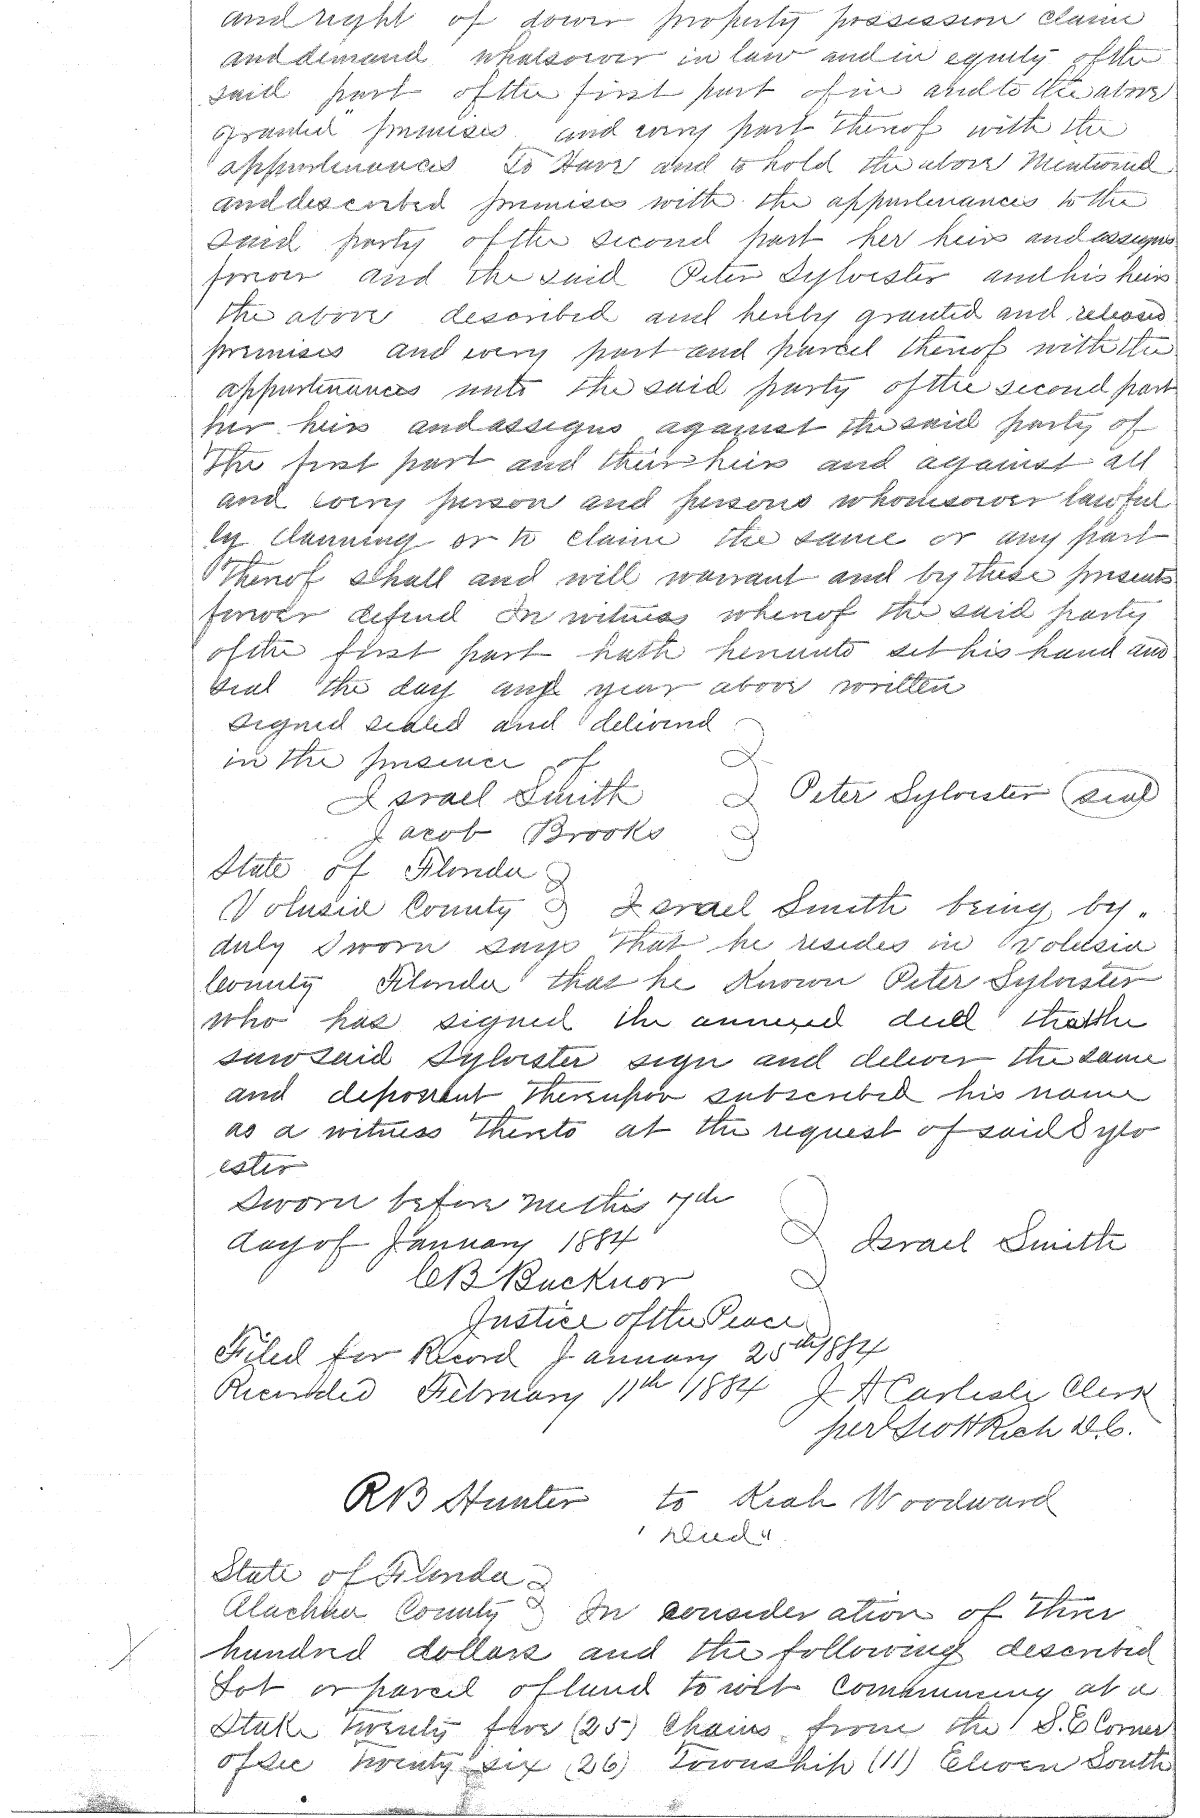 and right of dower property possession claim
and demand whatsoever in law and in equity of the
said part of the first part of in and to the above
granted" premises and every part thereof with the
appurtenances To Have and to hold the above Mentioned
and described premises with the appurtenances to the
said party of the second part her heirs and assigns
forever and the said Peter Sylvester and his heirs
the above described and hereby granted and released
premises and every part and parcel thereof with the
appurtenances unto the said party of the second part
her heirs and assigns against the said party of
The first part and their heirs and against all
and every person and persons whomsoever lawful
ly claiming or to claim the same or any part
thereof shall and will warrant and by these presents
forever defend In witness whereof the said party
of the first part hath hereunto set his hand and
seal the day and year above written
signed sealed and delivered
in the presence of
Israel Smith Peter Sylvester (seal)
Jacob Brooks
State of Florida
Volusia County Israel Smith being by.
duly sworn says that he resides in Volusia
County Florida that he known Peter Sylvester
who has signed the annexed deed that he
saw said Sylvester sign and deliver the same
and deponent thereupon subscribed his name
as a witness thereto at the request of said Sylv
ester
Sworn before me this 7th
day of January 1884 Israel Smith
C B Bucknor
Justice of the Peace
Filed for Record January 25th 1884
Recorded February 11th 1884 J A Carlisle Clerk
per Geo H Rich D.C.
R B Hunter to Kiah Woodward
"Deed"
State of Florida
Alachua County In consideration of three
hundred dollars and the following described
Lot or parcel of land to wit Commencing at a
Stake twenty five (25) Chains from the S.E Corner
of Sec twenty six (26) Township (11) Eleven South